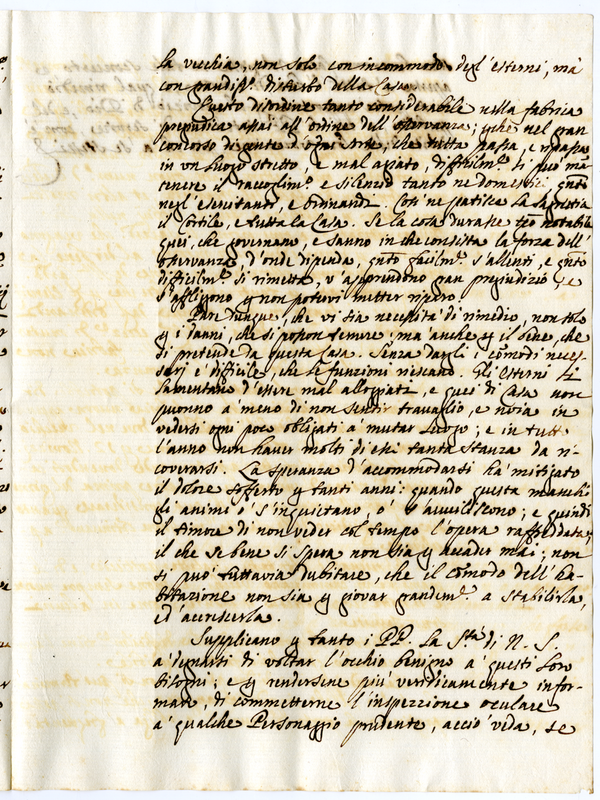 la vecchia, non solo con incommodo degl'esterni, mà
con grandiss.º disturbo della Casa.
Questo disordine tanto considerabile nella fabrica
pregiudica assai all'ordine dell'osservanza; p̱che nel gran
concorso di gente d'ogni sorte, che tutta passa, e ripassa
in vn luogo stretto, e mal agiato, difficilm.te si può man
tenere il raccoglim.to e silenzio tanto ne domestici, qnto
negl'esercitanti, e ordinandi. Così ne patisce la Sagrestia
il Cortile, e tutta la Casa. Se la cosa durasse tpo notabile
quei, che governano, e sanno in che consista la forza dell'
osservanza, d'onde dipenda, qnto facilm.te s'allenti, e qnto
difficilm.te si rimetta, v'apprendono gran pregiudizio, e
s'affliggono p̱ non potervi metter riparo.
Par dunque, che vi sia necessità di rimedio, non solo
p̱ i danni, che si possono temere, ma anche p̱ il bene, che
si pretende da questa Casa. Senza dargli i cõmodi neces-
sarj è difficile, che le funzioni riescano. Gli esterni si
lamentano d'essere mal alloggiati, e quei di Casa non
puonno a' meno di non sentir travaglio, e noia in
vedersi ogni poco obligati a' mutar luogo; e in tutto
l'anno non haver molti di essi tanta stanza da ri-
coverarsi. La speranza d'accommodarsi ha' mitigato
il dolore sofferto p̱ tanti anni: quando questa manchi
gli animi o' s'inquietano, o' s'avviliscono; e quindi
il timore di non veder col tempo l'opera raffreddata;
il che se bene si spera non sia p̱ accader mai; non
si può tuttavia dubitare, che il cõmodo dell'ha-
bitazione non sia p̱ giovar grandem.te a stabilirla,
ed accrescerla.
Supplicano p̱ tanto i PP. la S.tà di N. S.
a' degnarsi di voltar l'occhio benigno a' questi loro
bisogni; e p̱ rendersene più veridicamente infor-
mato, di commetterne l'inspezzione oculare
a' qualche Personaggio prudente, acciò veda, se